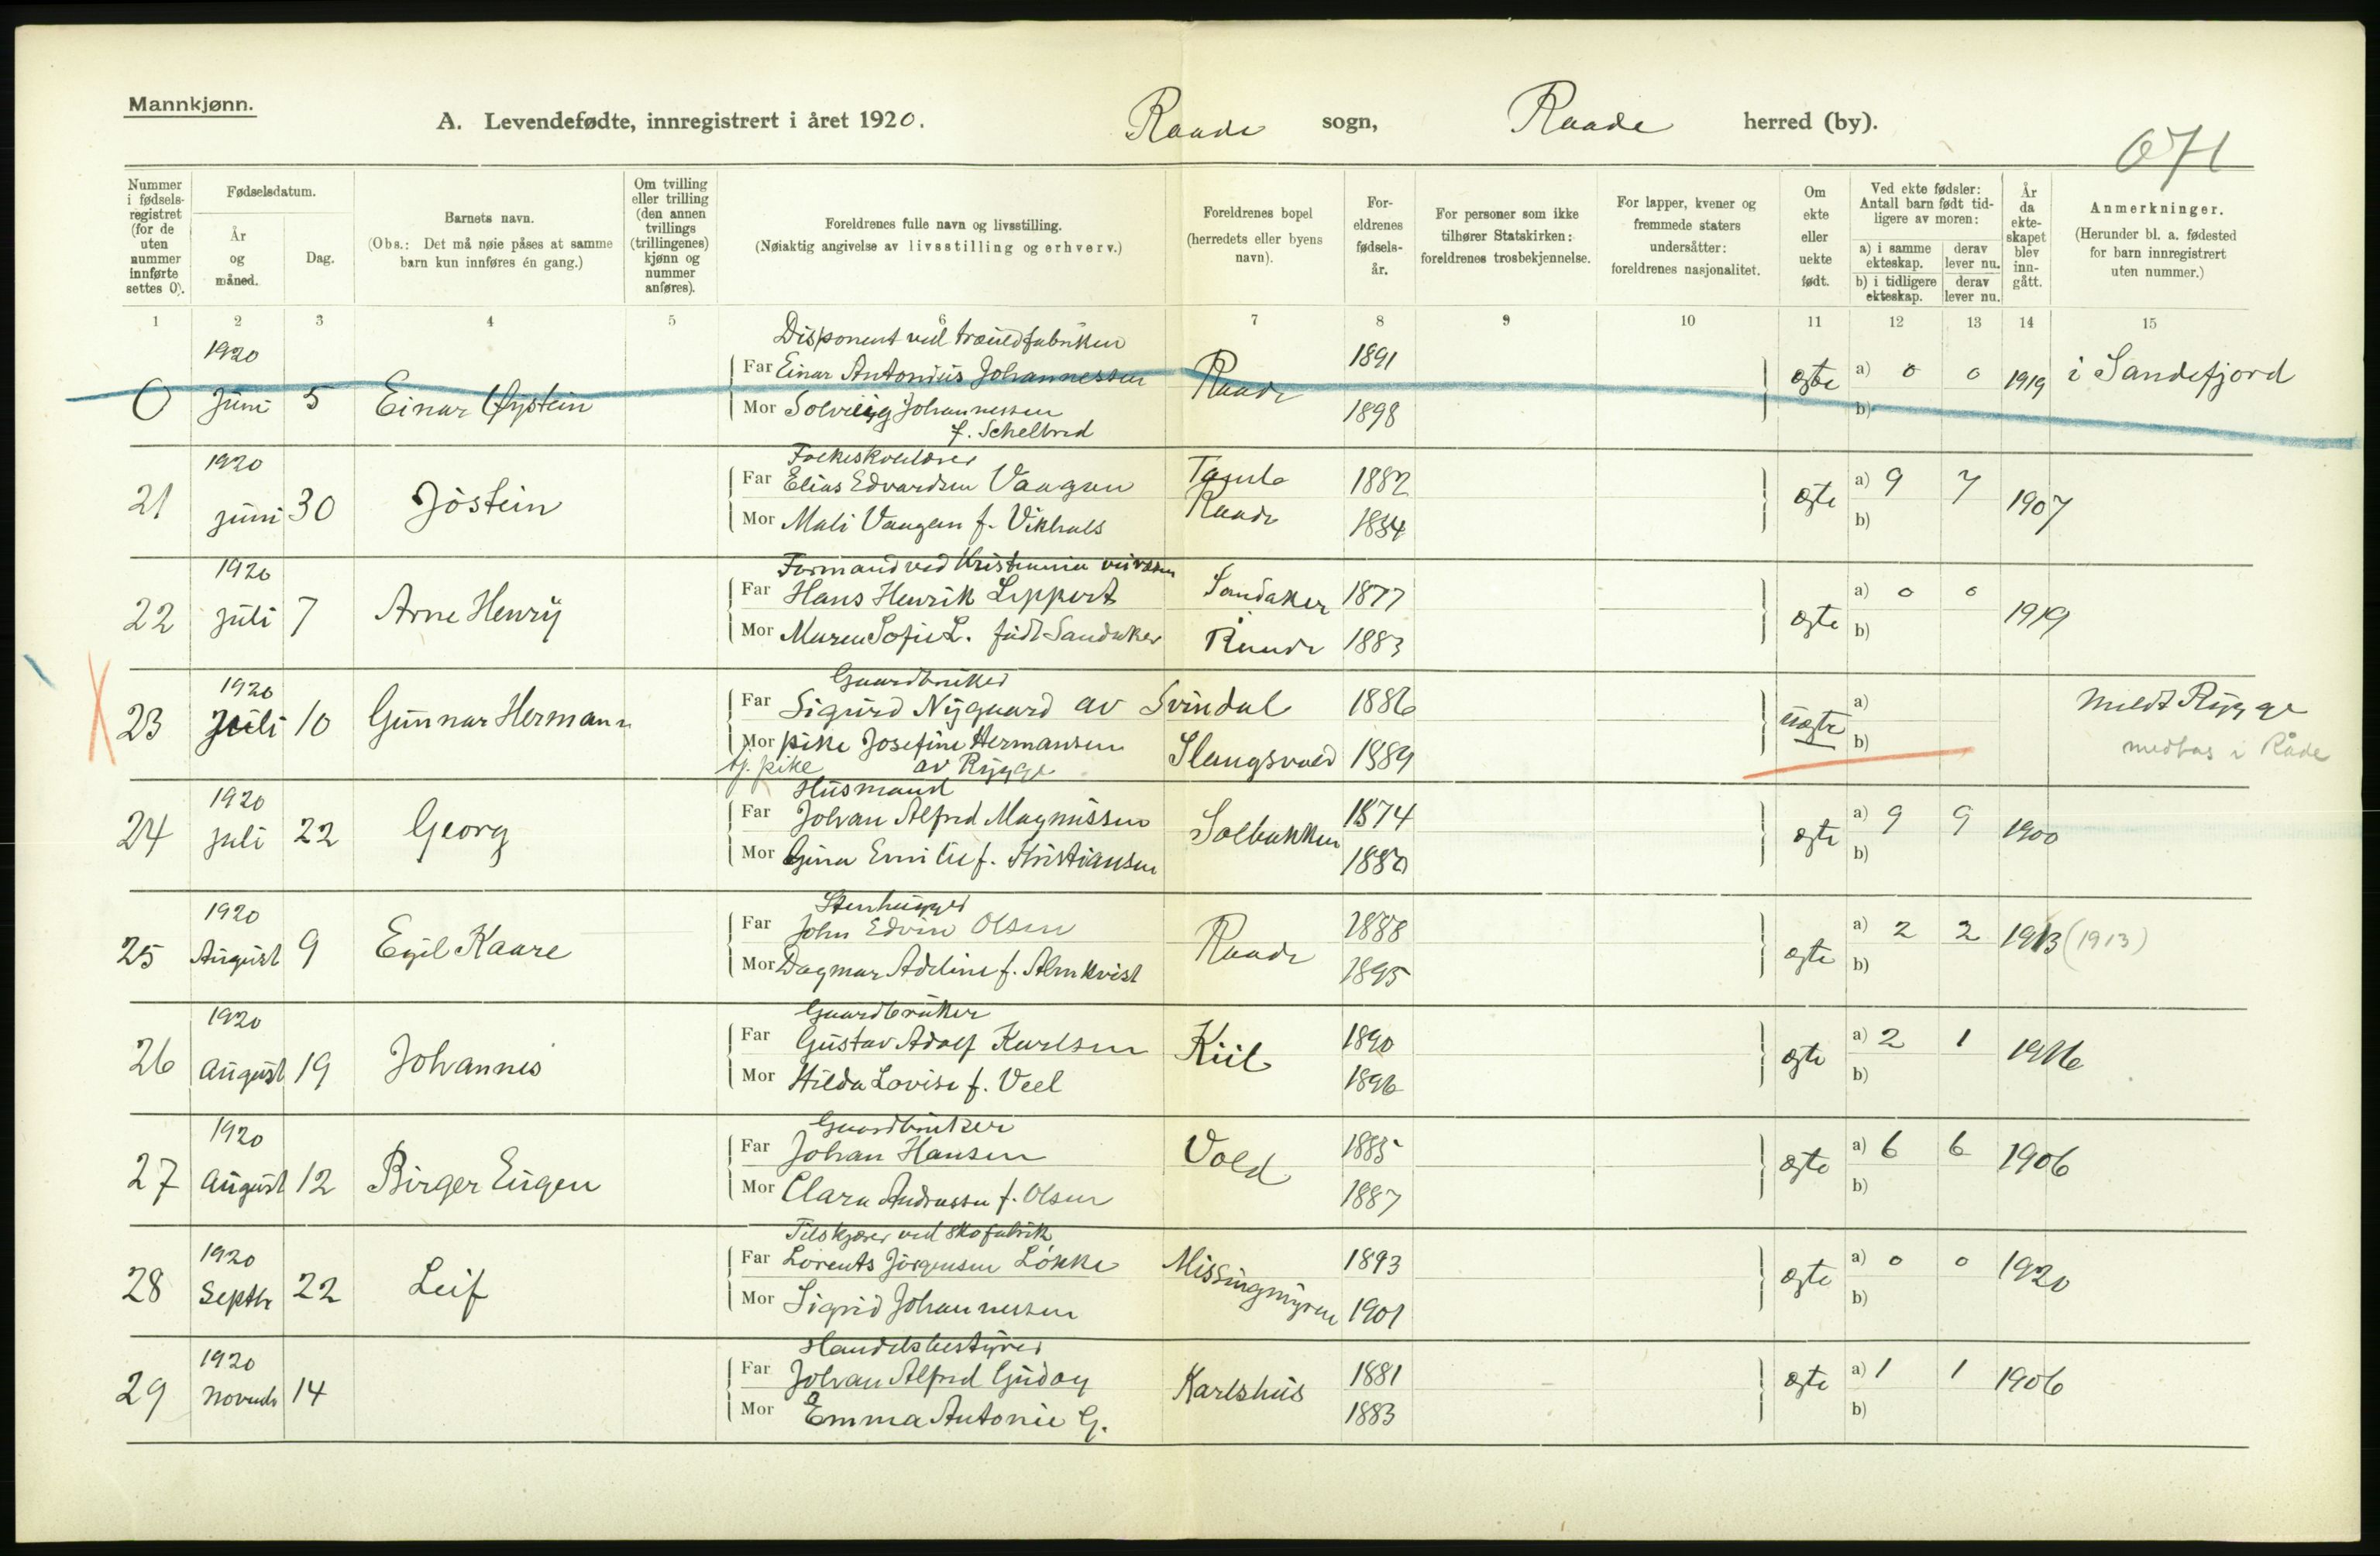 Mannkjønn.
A. Levendefødte, innregistrert i året 1920. Raade sogn, Raade herred (by).
071
Nummer i fødsels-registret (for de uten nummer innførte settes 0).
Fødselsdatum.
År og måned.
Dag.
Barnets navn.
(Obs.: Det må nøie påses at samme barn kun innføres én gang.)
Om tvilling eller trilling (den annen tvillings (trillingenes) kjønn og nummer anføres).
Foreldrenes fulle navn og livsstilling.
(Nøiaktig angivelse av livsstilling og erhverv.)
Foreldrenes bopel (herredets eller byens navn).
For-eldrenes fødsels-år.
For personer som ikke tilhører Statskirken: foreldrenes trosbekjennelse.
For lapper, kvener og fremmede staters undersåtter: foreldrenes nasjonalitet.
Om ekte eller uekte født.
Ved ekte fødsler: Antall barn født tid-ligere av moren:
a) i samme ekteskap. derav lever nu.
b) i tidligere ekteskap. derav lever nu.
År da ekte-skapet blev inn-gått.
Anmerkninger.
(Herunder bl. a. fødested for barn innregistrert uten nummer.)
1 2 3 4 5 6 7 8 9 10 11 12 13 14 15
1920 Disponent ved træuldfabriken
Far Einar Antonius Johannessen 1891
0 Juni 5 Einar Øystein Raade ægte a) 0 0 1919 i Sandefjord
Mor Solveig Johannessen 1898 b)
f. Schelbred
1920 Folkeskolelærer
Far Elias Edvardsen Vaagan Tomb 1882 a) 9 7
21 juni 30 Jøstein Raade ægte 1907
Mor Mali Vaagan f. Vikhals 1884 b)
1920 Formand ved Kristiania veivæsen
Far Hans Henrik Lippert Sandaker 1877 a) 0 0
22 juli 7 Arne Henry ægte 1919
Mor Maren Sofie L. født Sandaker Raade 1883 b)
1920 Gaardbruker
Far Sigurd Nygaard av Svindal 1886 a) meldt Rygge
23 Juli 10 Gunnar Hermann uægte
Mor pike Josefine Hermansen Slangsvold 1889 b) medtas i Råde
tj. pike av Rygge
1920 Husmand
Far Johan Alfred Magnussen 1874 a) 9 9
24 juli 22 Georg Solbakken ægte 1900
Mor Gina Emilie f. Kristiansen 1880 b)
1920 Stenhugger
Far John Edvin Olsen 1888 a) 2 2
25 August 9 Egil Kaare Raade ægte 1913 (1913)
Mor Dagmar Adeline f. Almkvist 1895 b)
1920 Gaardbruker
Far Gustav Adolf Karlsen 1890 a) 2 1
26 August 19 Johannes Kiil ægte 1916
Mor Hilda Lovise f. Veel 1896 b)
1920 Gaardbruker
Far Johan Hansen 1885 a) 6 6
27 August 12 Birger Eugen Vold ægte 1906
Mor Clara Andreassen f. Olsen 1887 b)
1920 Tilskjærer ved skofabrik
Far Lorents Jørgensen Løkke Missingmyren 1893 a) 0 0
28 Septbr 22 Leif ægte 1920
Mor Sigrid Johannessen 1901 b)
1920 Handelsbestyrer
Far Johan Alfred Gudoy 1881 a) 1 1
29 Novembr 14 Karlshus ægte 1906
Mor Emma Antonie G. 1883 b)